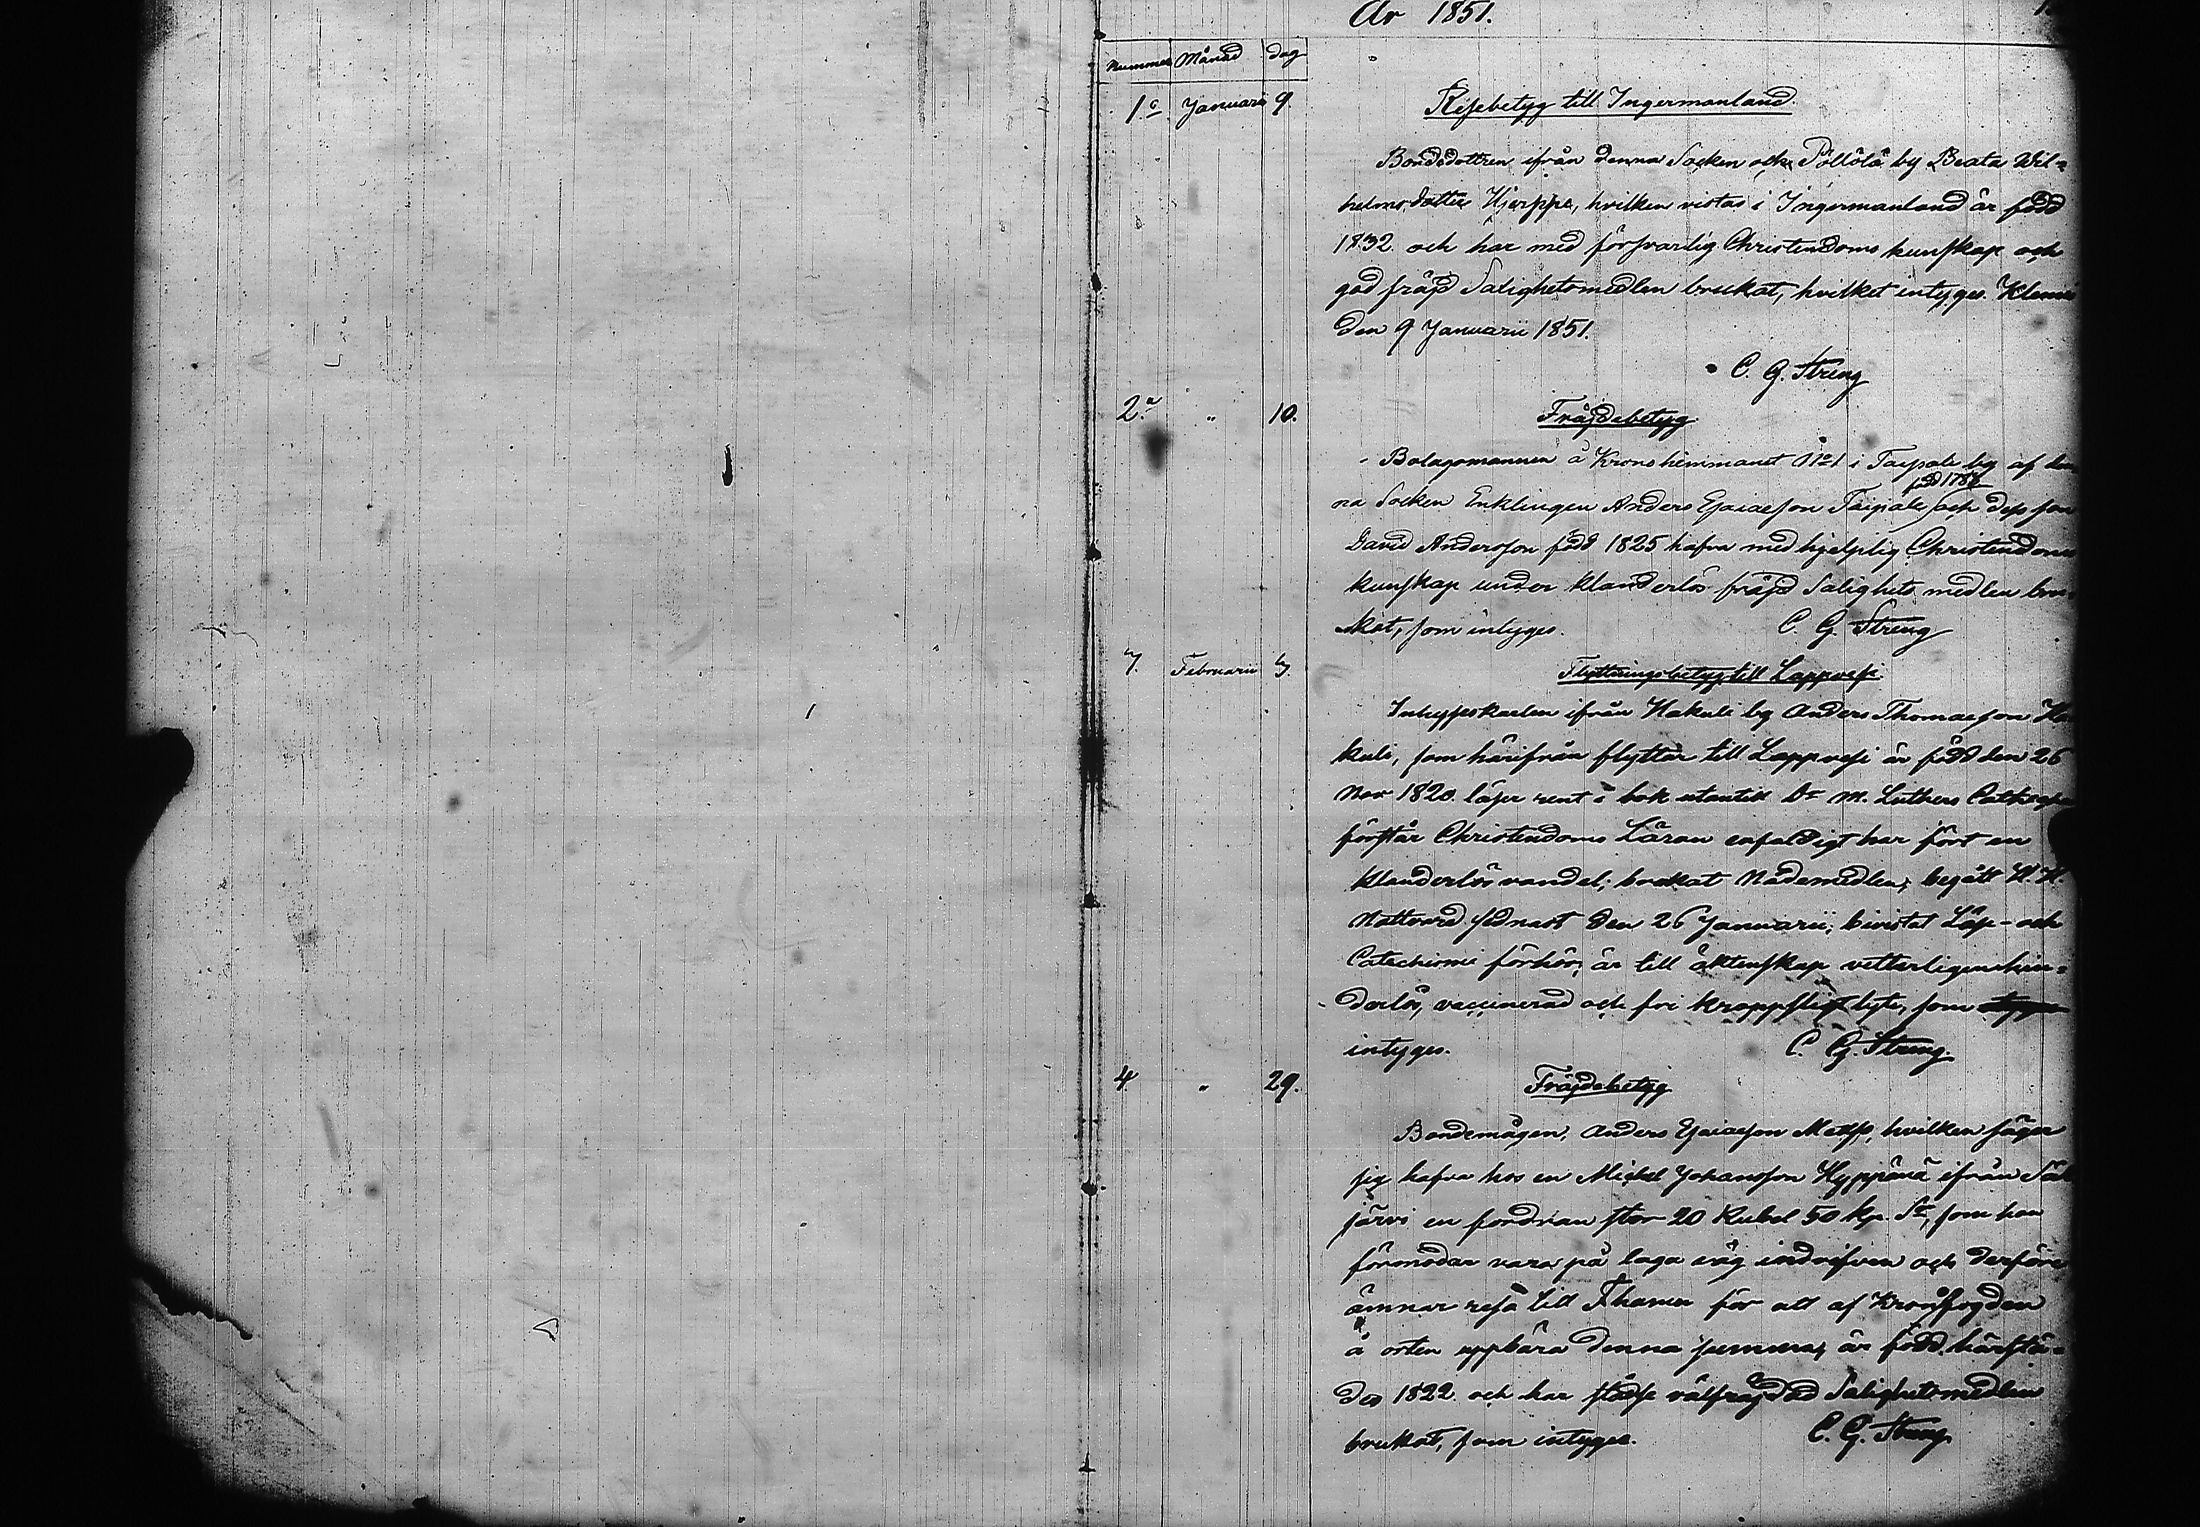 År 1851.
Nummer Månad dag
1. Januarii 9. Resebetyg till Ingermanland.
Bondedottren ifrån denna Socken och Pöllölä by Beata Wil-
helmsdotter Hjerppe, hvilken vistas i Ingermanland är född
1832 och har med försvarlig Christendoms kunskap och
god fräjd Salighetsmedlen brukat, hvilket intyges. Klemis
den 9 Januarii 1851.
C. G. Streng
2. " 10. Fräjdebetyg
Bolagsmannen å Kronohemmanet No 1 i Taipale by af den
född 1788
na Socken Enklingen Anders Esaiæson Taipale och dess son
David Andersson född 1825 hafva med hjelplig Christendoms
kunskap under klanderlös fräjd Salighets medlen bru-
kat, som intyges. C. G. Streng
3. Februarii 3. Flyttningsbetyg till Lappvesi
Inhyseskarlen ifrån Hakuli by Anders Thomasson Ha
kuli, som härifrån flyttar till Lappvesi är född den 26
Nov 1820. läser rent i bok utantill Dr M. Luthers Cathes
förstår Christendoms Läran enfaldigt har fört en
klanderlös vandel; brukat Nådemedlen; begått H. H.
Nattvard sednast den 26 Januarii; bevistat Läse- och
Catechismi förhör; är till äktenskap vetterligen hin-
derlös, vaccinerad och fri kroppsligt lyte, som
intyges. C. G. Streng
4 " 29. Fräjdebetyg
Bondemågen, Anders Esaiæson Mettse, hvilken säger
sig hafva hos en Michel Johansson Hyppänä ifrån Säk
järvi en fordran stor 20 Rubel 50 kp. Sr, som han
förmodar vara på laga väg indrifven och derföre
ämnar resa till Thaven för att af Kronofogden
å orten uppbära denna summa, är född härstä-
des 1822 och har städse välfräjdad Salighetsmedlen
brukat, som intyges. C. G. Streng